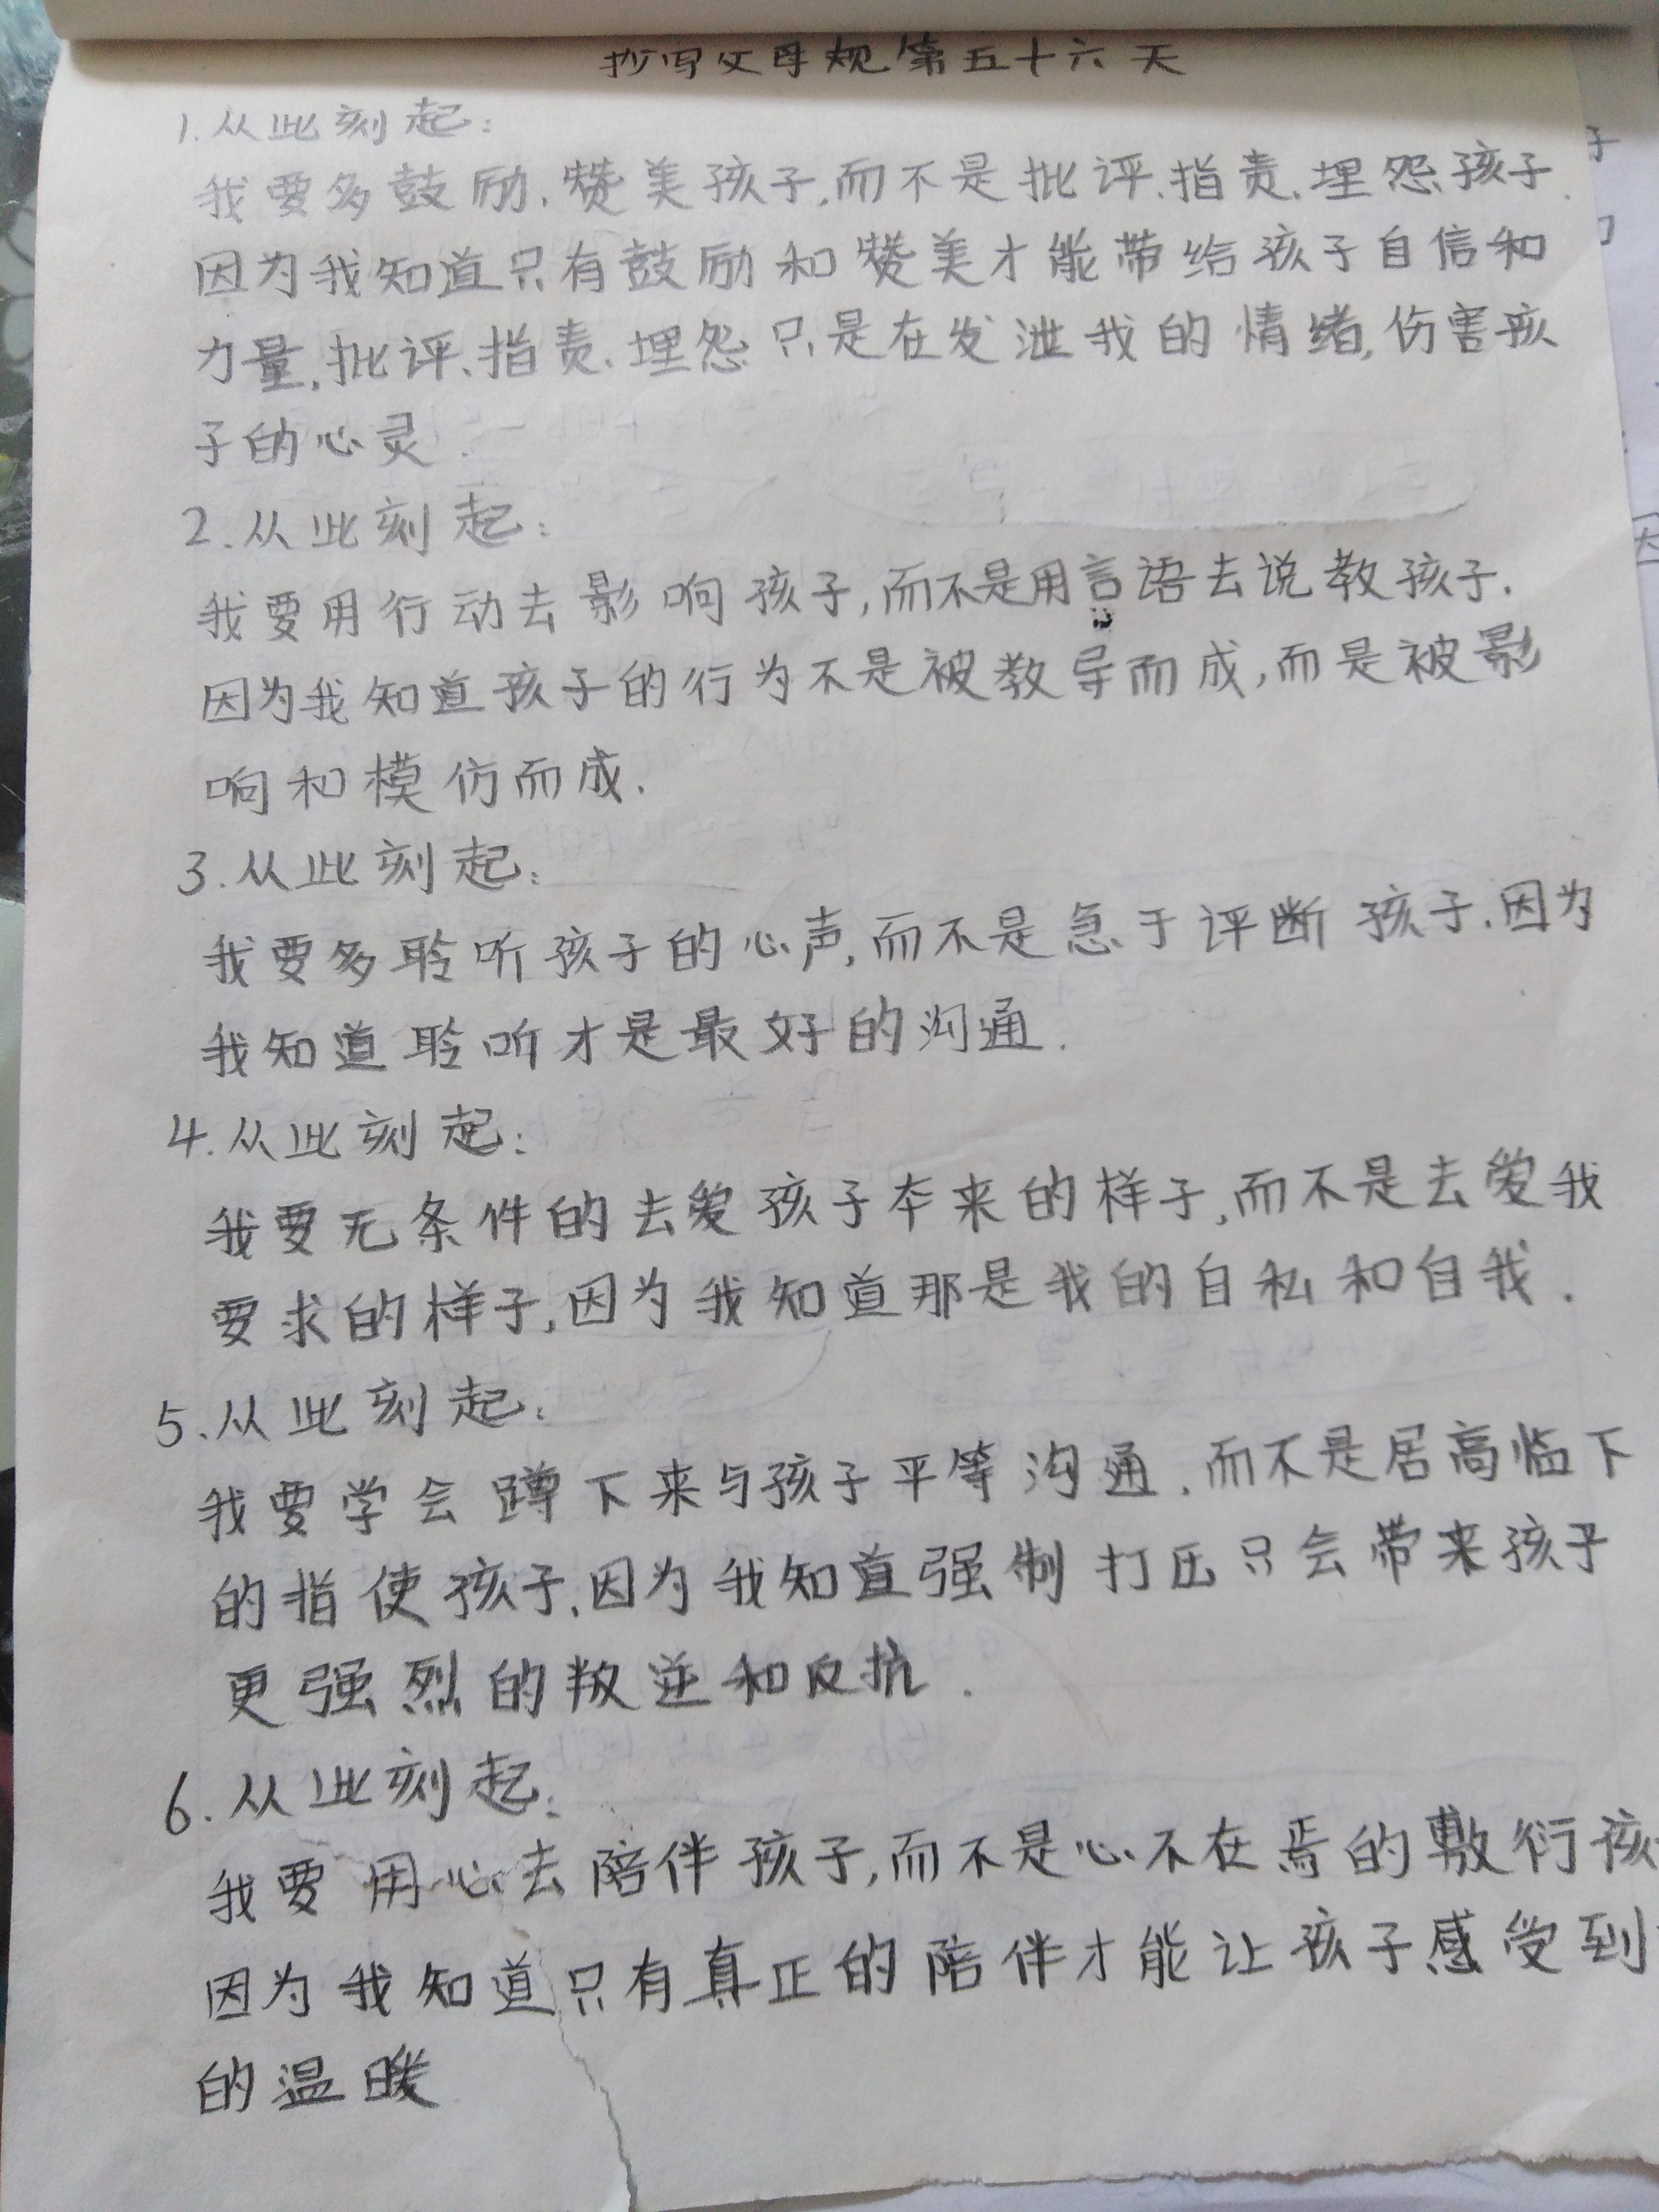 抄写父母规第五十六天
1.从此刻起:
我要多鼓励、赞美孩子,而不是批评、指责、埋怨孩子.
因为我知道只有鼓励和赞美才能带给孩子自信和
力量,批评、指责、埋怨只是在发泄我的情绪,伤害孩
子的心灵.
2.从此刻起:
我要用行动去影响孩子,而不是用言语去说教孩子.
因为我知道孩子的行为不是被教导而成,而是被影
响和模仿而成.
3.从此刻起:
我要多聆听孩子的心声,而不是急于评断孩子.因为
我知道聆听才是最好的沟通.
4.从此刻起:
我要无条件的去爱孩子本来的样子,而不是去爱我
要求的样子,因为我知道那是我的自私和自我.
5.从此刻起:
我要学会蹲下来与孩子平等沟通.而不是居高临下
的指使孩子,因为我知道强制打压只会带来孩子
更强烈的叛逆和反抗.
6.从此刻起:
我要用心去陪伴孩子,而不是心不在焉的敷衍孩
因为我知道只有真正的陪伴才能让孩子感受到
的温暖